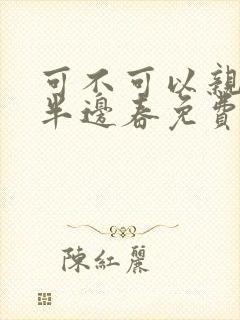 可不可以親
半邊春免費
陳紅麗